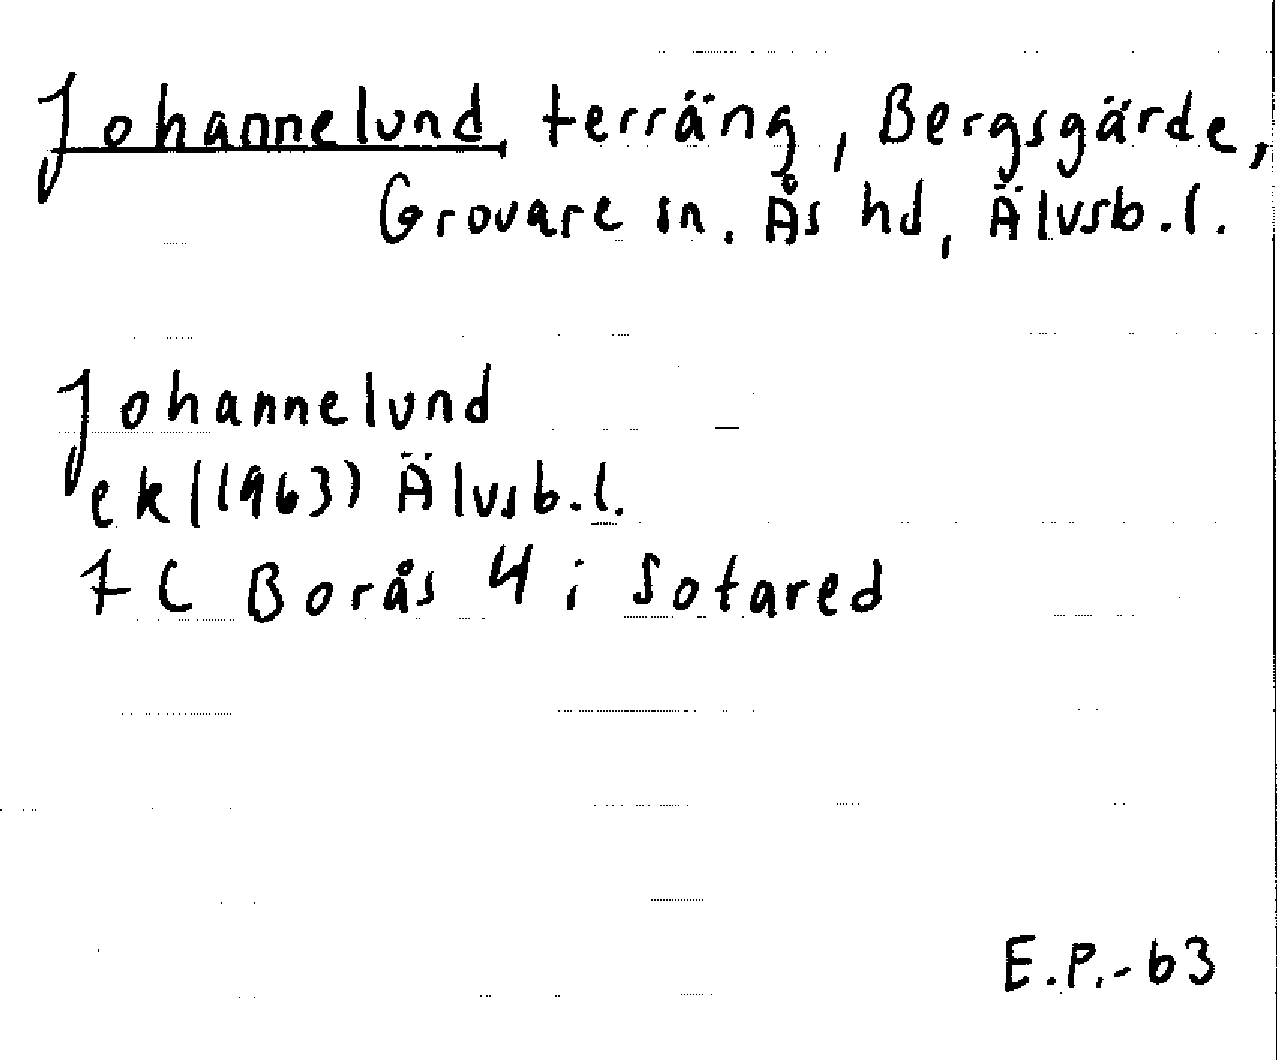 Johannelund, terräng, Bergsgärde,
Grovare sn. Ås hd, Älvsb.l.
Johannelund
ek (1963) Älvsb.l.
7C Borås 4 i Sotared
E.P.-63